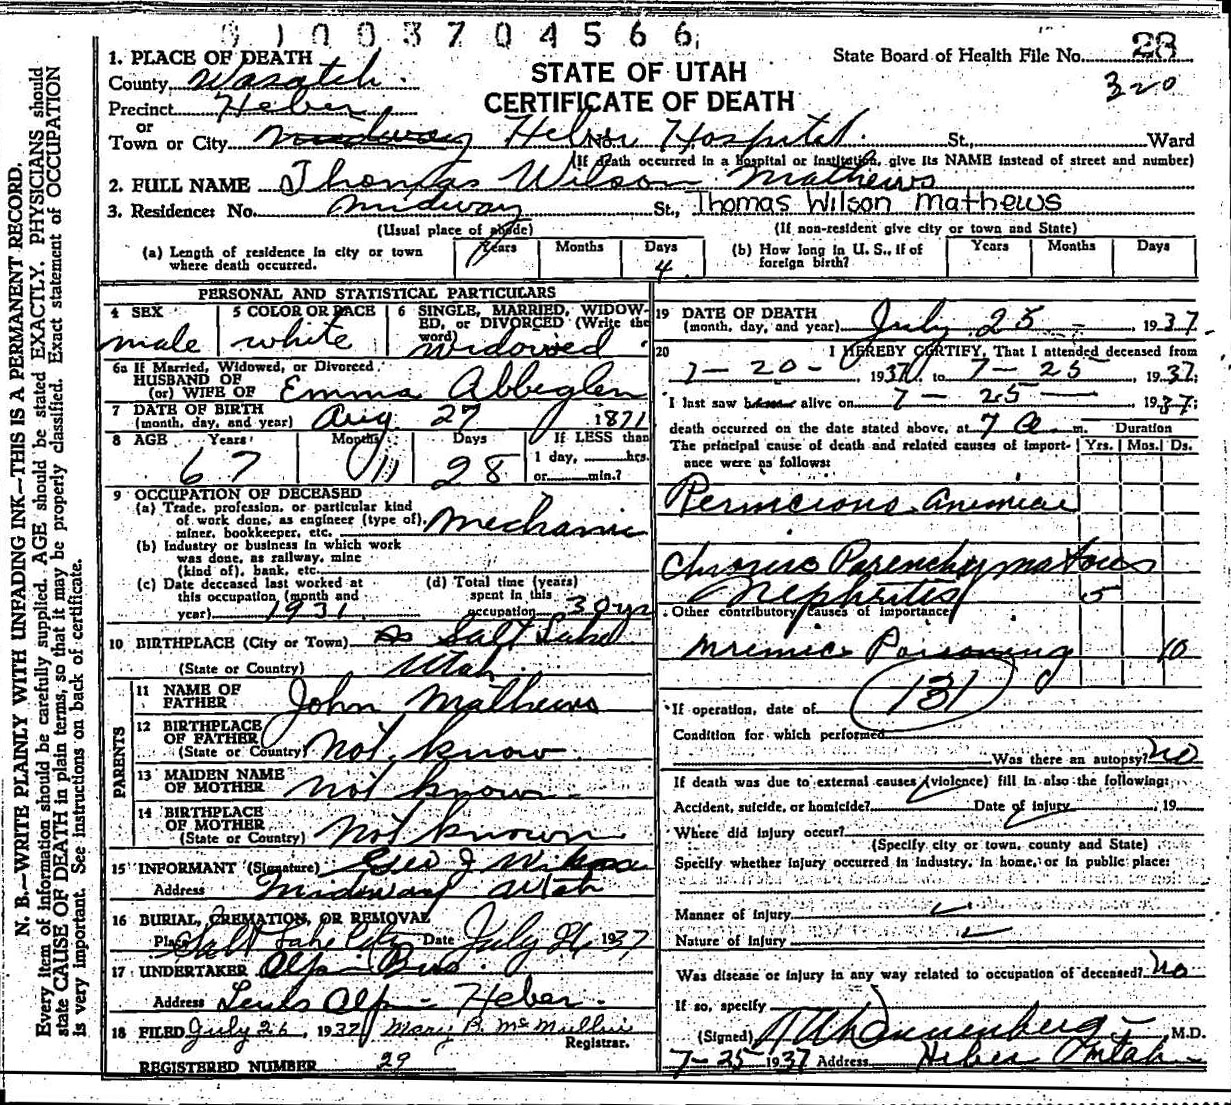 9 1 0 0 3 7 0 4 5 6 6
State Board of Health File No. 28
320
STATE OF UTAH
CERTIFICATE OF DEATH
1. PLACE OF DEATH
County Wasatch
Precinct Heber
or
Town or City Midway Heber No. Hospital St., Ward
(If death occurred in a hospital or institution, give its NAME instead of street and number)
2. FULL NAME Thomas Wilson Mathews
3. Residence: No. Midway St., Thomas Wilson Mathews
(Usual place of abode) (If non-resident give city or town and State)
(a) Length of residence in city or town where death occurred. Years Months Days 4
(b) How long in U. S., if of foreign birth? Years Months Days
PERSONAL AND STATISTICAL PARTICULARS
4 SEX male
5 COLOR OR RACE white
6 SINGLE, MARRIED, WIDOWED, or DIVORCED (Write the word) widowed
6a If Married, Widowed, or Divorced
HUSBAND OF
(or) WIFE OF Emma Abbeglen
7 DATE OF BIRTH
(month, day, and year) Aug 27 1871
8 AGE Years 67 Months 11 Days 28 If LESS than 1 day, hrs. or min.?
9 OCCUPATION OF DECEASED
(a) Trade, profession, or particular kind
of work done, as engineer (type of),
miner, bookkeeper, etc. Mechanic
(b) Industry or business in which work
was done, as railway, mine
(kind of), bank, etc.
(c) Date deceased last worked at
this occupation (month and
year) 1931
(d) Total time (years)
spent in this
occupation 30 yrs
10 BIRTHPLACE (City or Town) Salt Lake
(State or Country) Utah
PARENTS
11 NAME OF
FATHER John Mathews
12 BIRTHPLACE
OF FATHER
(State or Country) not know
13 MAIDEN NAME
OF MOTHER not known
14 BIRTHPLACE
OF MOTHER
(State or Country) not known
15 INFORMANT (Signature) Geo J
Address Midway Utah
16 BURIAL, CREMATION, OR REMOVAL
Place Salt Lake City Date July 26 1937
17 UNDERTAKER Olpin Bros.
Address Lewis Olpin Heber.
18 FILED July 26, 1937 Mary B. McMullin
Registrar.
REGISTERED NUMBER 29
19 DATE OF DEATH
(month, day, and year) July 25 1937
20 I HEREBY CERTIFY, That I attended deceased from
7-20- 1937, to 7-25, 1937;
I last saw him alive on 7-25 1937;
death occurred on the date stated above, at 7 a m. Duration
The principal cause of death and related causes of importance were as follows: Yrs. Mos. Ds.
Pernicious anemiae
Chronic Parenchymatous
Nephrites 5
Other contributory causes of importance
Uremic Poisoning 10
131
If operation, date of
Condition for which performed
Was there an autopsy? No
If death was due to external causes (violence) fill in also the following:
Accident, suicide, or homicide? Date of injury , 19
Where did injury occur?
(Specify city or town, county and State)
Specify whether injury occurred in industry, in home, or in public place:
Manner of injury
Nature of injury
Was disease or injury in any way related to occupation of deceased? No
If so, specify
(Signed) Dannenberg, M.D.
7-25 1937 Address Heber Utah
N. B.—WRITE PLAINLY WITH UNFADING INK—THIS IS A PERMANENT RECORD.
Every item of information should be carefully supplied. AGE should be stated EXACTLY. PHYSICIANS should
state CAUSE OF DEATH in plain terms, so that it may be properly classified. Exact statement of OCCUPATION
is very important. See instructions on back of certificate.